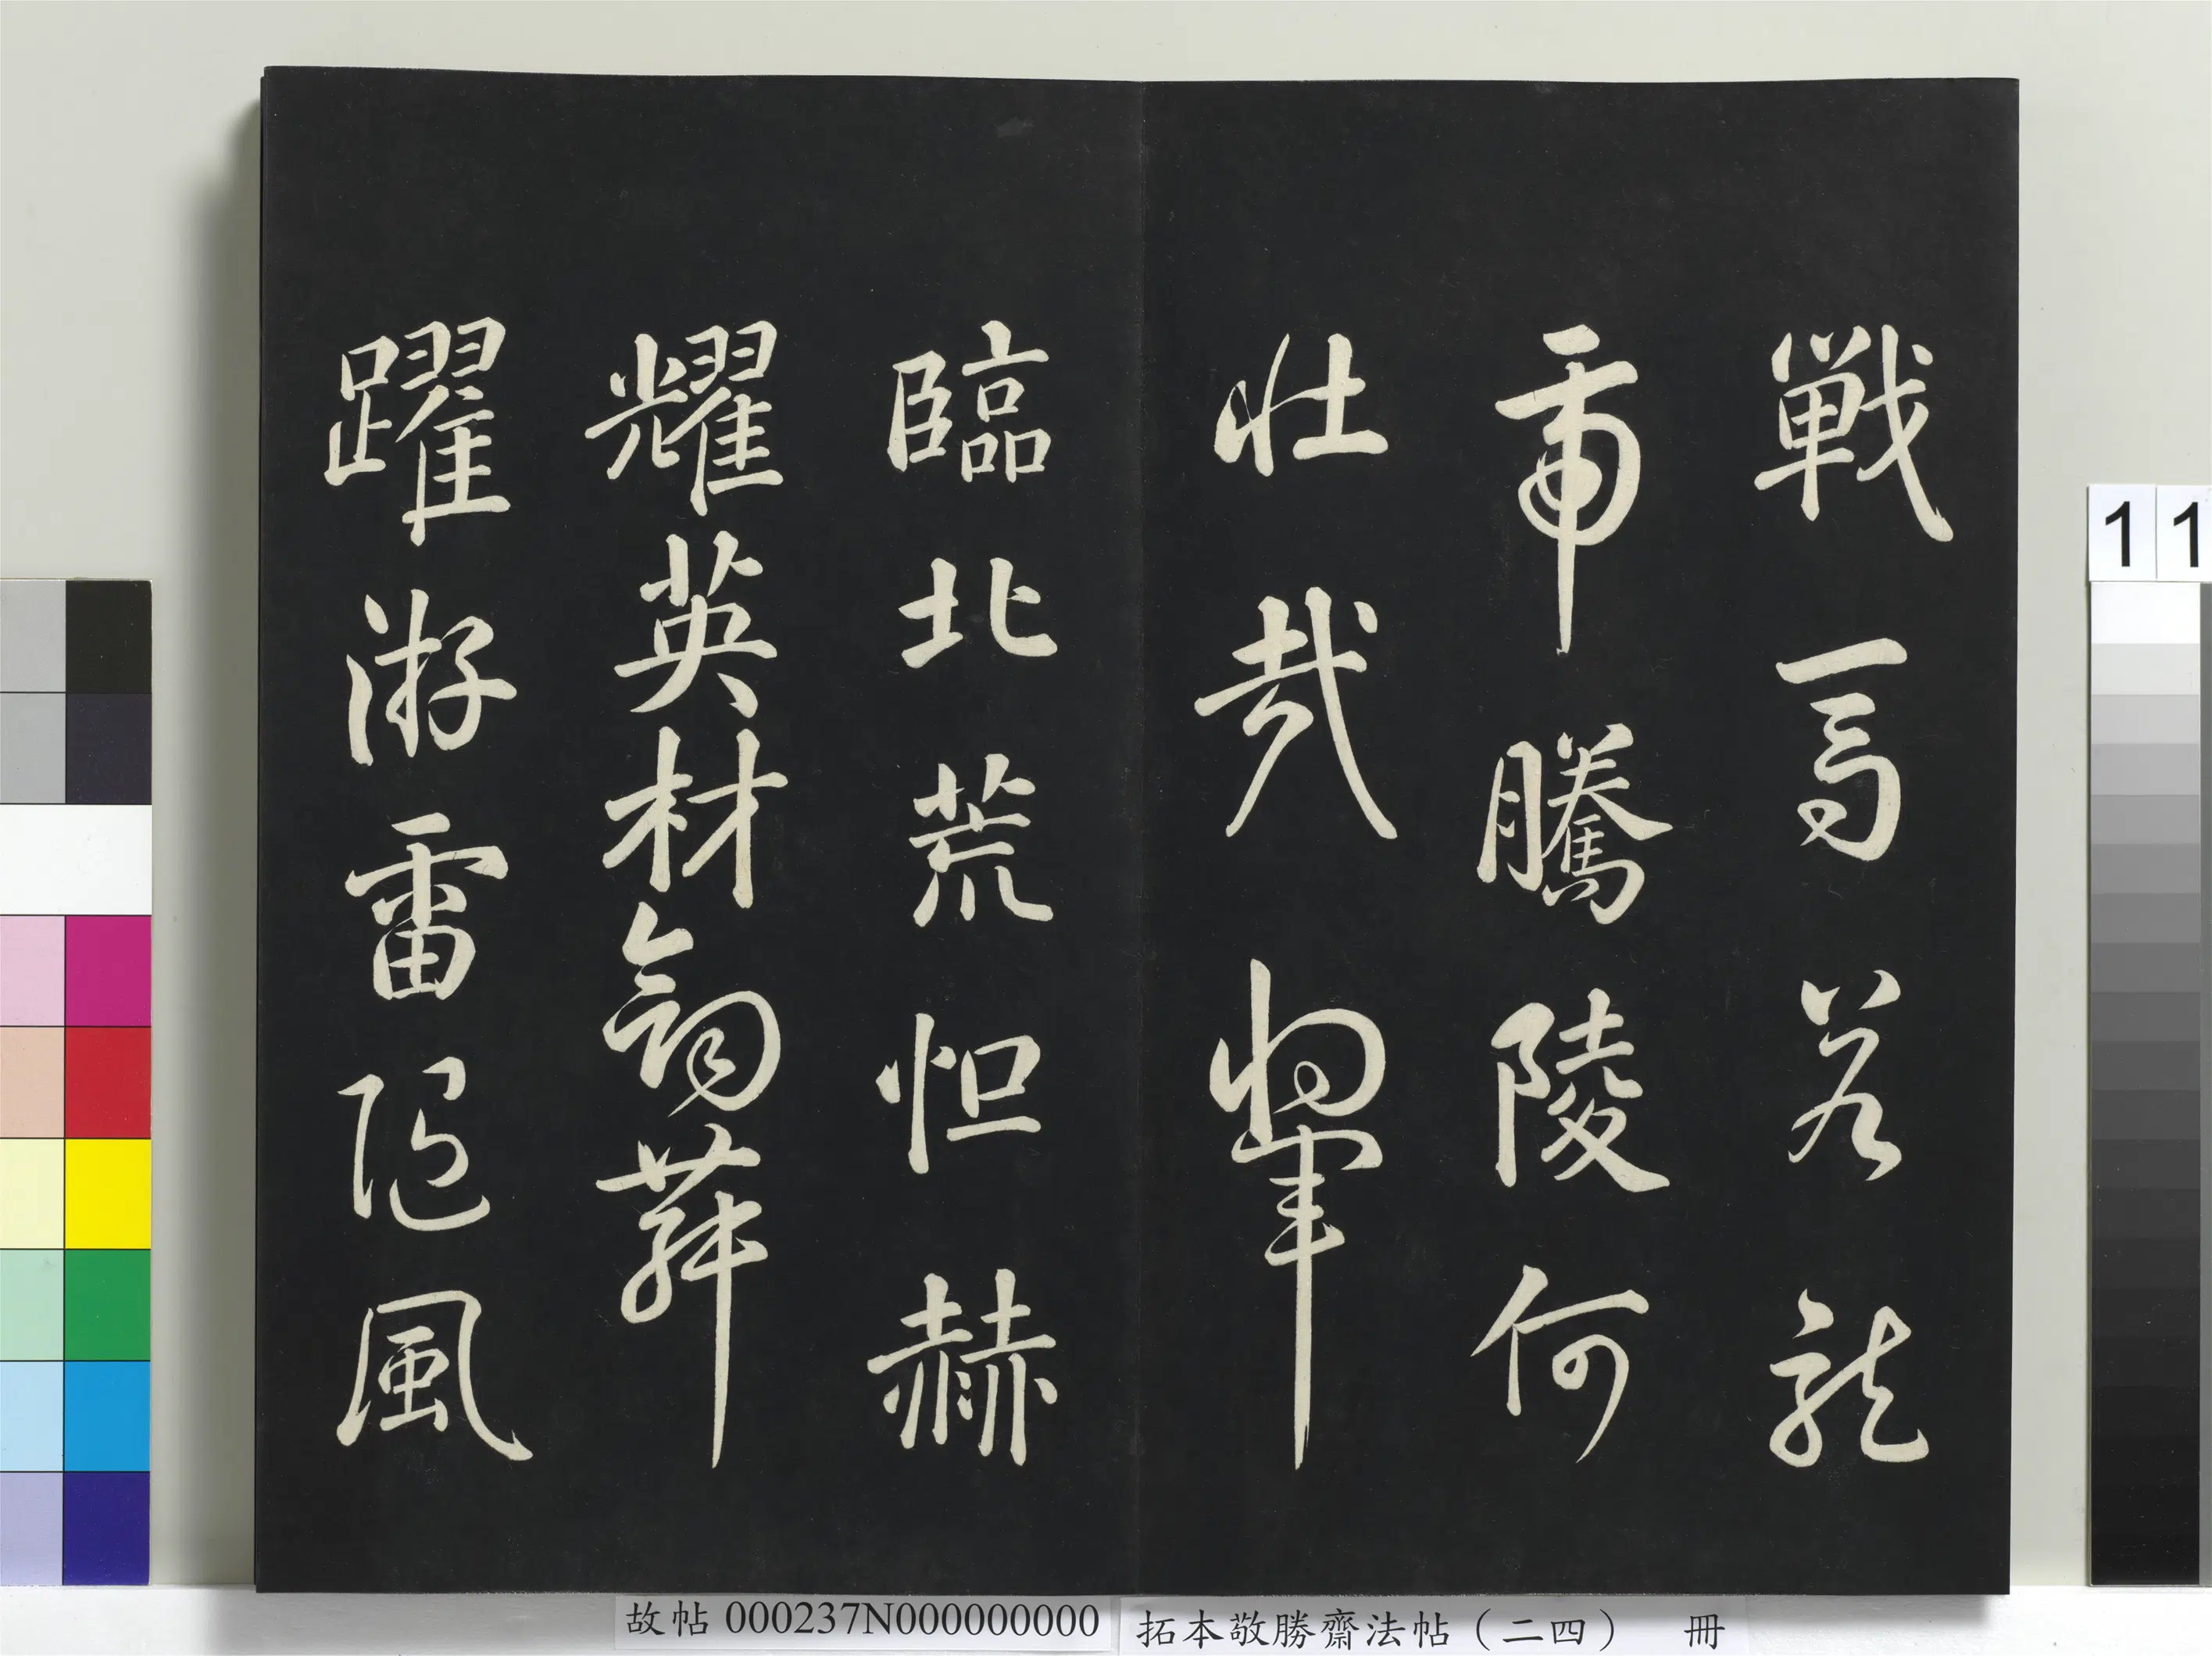 戰馬若龍
虎騰陵何
壯哉將軍
臨北荒烜赫
耀英材劍舞
躍游雷隨風
11
故帖 000237N000000000
拓本敬勝齋法帖(二四) 冊